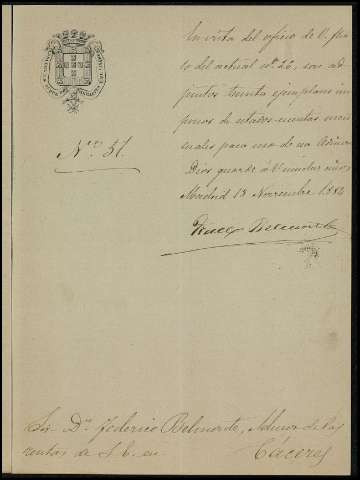 En vista del oficio de V. fha
lo del actual nº 26, son ad
juntos treinta ejemplares im
presos de estados-cuentas men
suales para uso de esa Admon
Dios guarde á V. muchos años
Madrid 13 Noviembre 1884
Nº 51.
Belmonte
Sr. Dn. Federico Belmonte, Admor de las
rentas de S. E. en
Cáceres